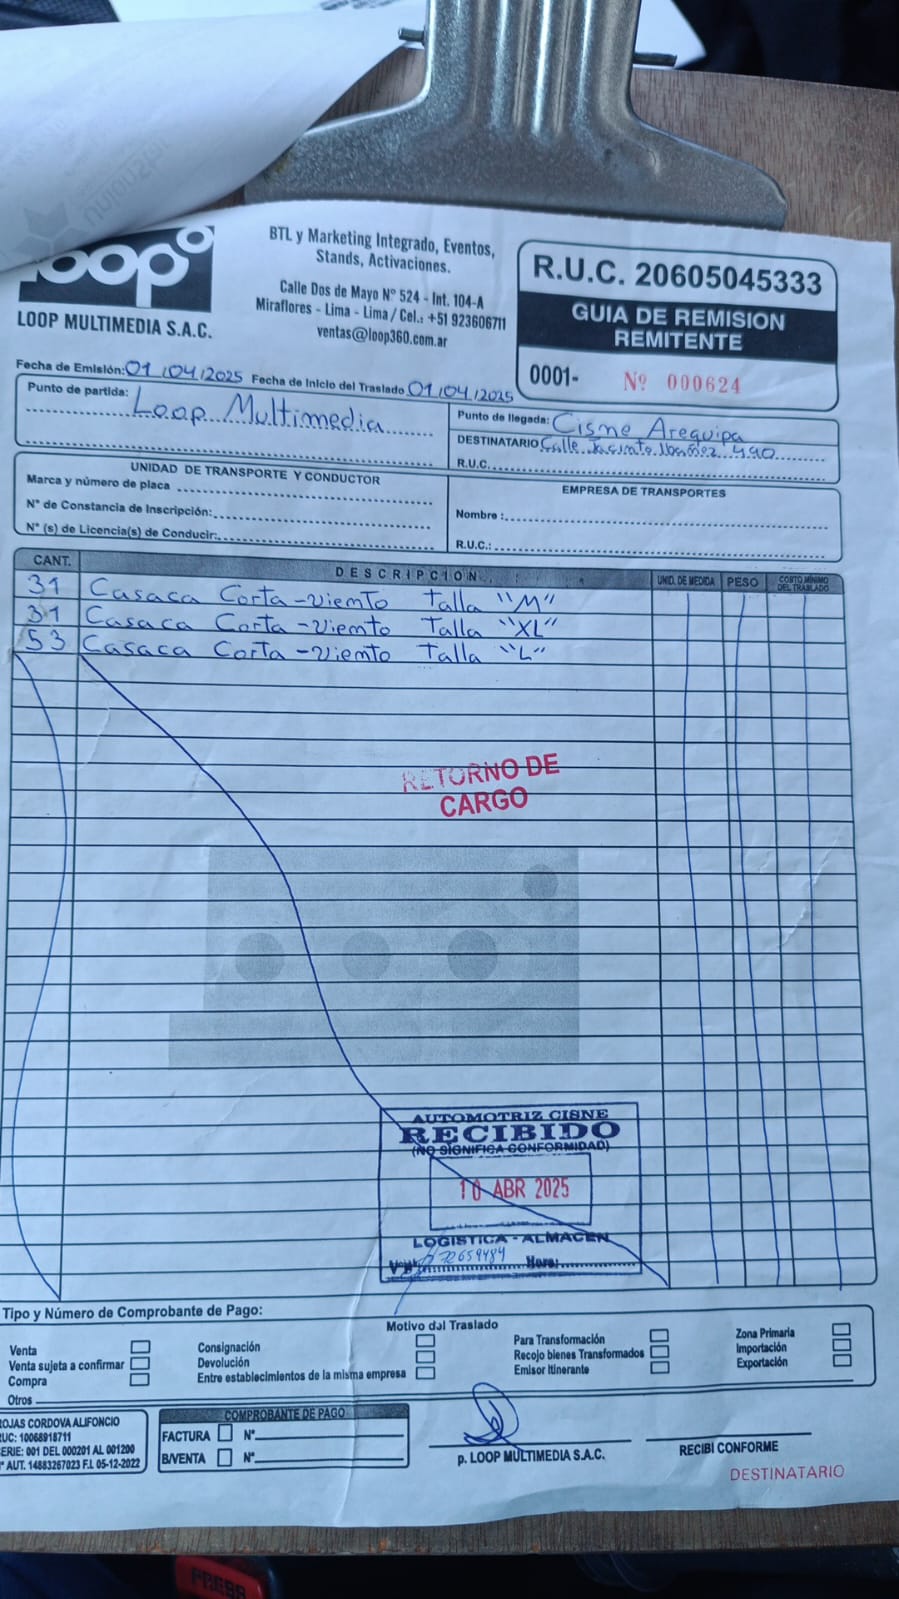 loop
LOOP MULTIMEDIA S.A.C.
BTL y Marketing Integrado, Eventos,
Stands, Activaciones.
Calle Dos de Mayo N° 524 - Int. 104-A
Miraflores - Lima - Lima / Cel.: +51 923606711
ventas@loop360.com.ar
R.U.C. 20605045333
GUIA DE REMISION
REMITENTE
0001- Nº 000624
Fecha de Emisión: 01/04/2025 Fecha de Inicio del Traslado 01/04/2025
Punto de partida: Loop Multimedia
Punto de llegada: Cisne Arequipa
DESTINATARIO Calle Jacinto Ibañez 490
R.U.C.
UNIDAD DE TRANSPORTE Y CONDUCTOR
Marca y número de placa
N° de Constancia de Inscripción:
N° (s) de Licencia(s) de Conducir:
EMPRESA DE TRANSPORTES
Nombre :
R.U.C.:
CANT. DESCRIPCION UNID. DE MEDIDA PESO COSTO MÍNIMO DEL TRASLADO
31 Casaca Corta-viento Talla "M"
31 Casaca Corta-viento Talla "XL"
53 Casaca Corta-viento Talla "L"
RETORNO DE
CARGO
AUTOMOTRIZ CISNE
RECIBIDO
(NO SIGNIFICA CONFORMIDAD)
10 ABR 2025
LOGISTICA - ALMACEN
72659484 Hora:
Tipo y Número de Comprobante de Pago:
Motivo del Traslado
Venta
Venta sujeta a confirmar
Compra
Otros
Consignación
Devolución
Entre establecimientos de la misma empresa
Para Transformación
Recojo bienes Transformados
Emisor Itinerante
Zona Primaria
Importación
Exportación
ROJAS CORDOVA ALIFONCIO
RUC: 10068918711
SERIE: 001 DEL 000201 AL 001200
N° AUT. 14883267023 F.I. 05-12-2022
COMPROBANTE DE PAGO
FACTURA N°
B/VENTA N°
p. LOOP MULTIMEDIA S.A.C.
RECIBI CONFORME
DESTINATARIO
PRESS